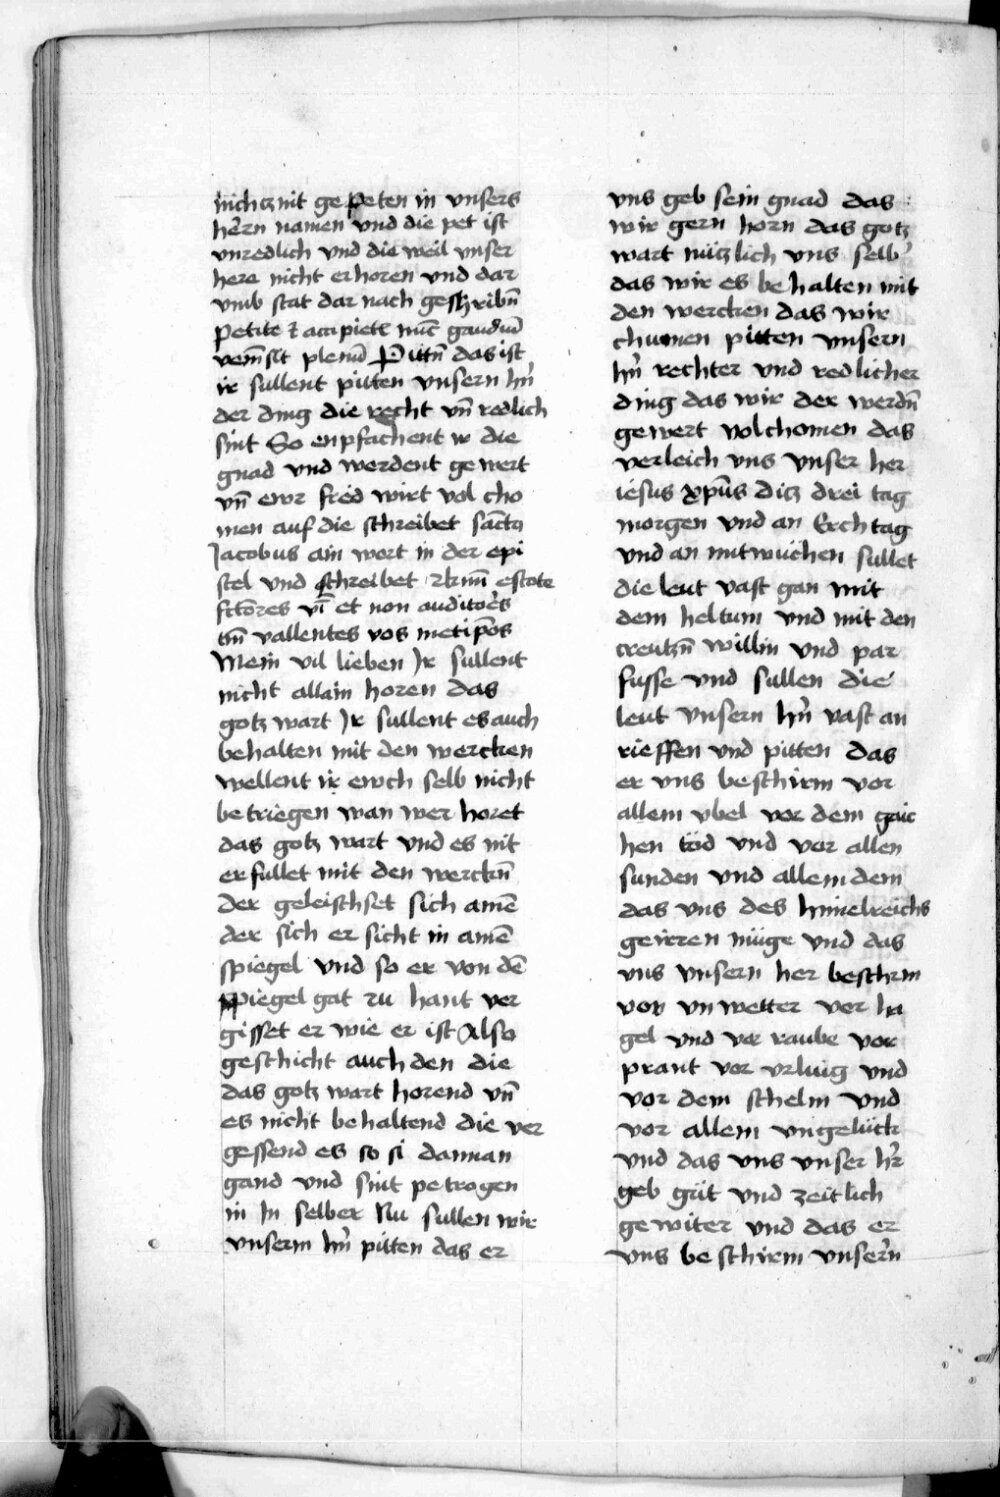 nichcznit gepeten in vnsers
hern namen vnd die pet ist
vnredlich vnd die weil vnser
here nicht erhoren vnd dar
vmb stat dar nach geschribn̄
Petite ⁊ accipietꝭ
plenū Pittn̄ das ist
ir sullent pitten vnsern hn̄
der ding die recht vn̄ redlich
sint So enpfachent ir die
gnad vnd werdent gewert
vn̄ ewr fred wirt vol cho
men auf die schreibet sāctꝫ
Jacobus ain wort in der epi
stel vnd schreibet estote
fctōres vī et non auditōes
tm̄ vallentes vos metip̄os
Mein vil lieben Jr sullent
nicht allain horen das
gotz wart Jr sullent es auch
behalten mit den wercken
wellent ir ewch selb nicht
betriegen wan wer horet
das gotz wart vnd es nit
erfullet mit den werckn̄
der geleischset sich amē
der sich er sicht in amē
spiegel vnd so er von dē
spiegel gat zu hant ver
gisset er wie er ist Also
geschicht auch den die
das gotz wart horend vn̄
es nicht behaltend die ver
gessend es so si dannan
gand vnd sint petrogen
in In selber Nu sullen wir
vnserm hn̄ pitten das er
vns geb sein gnad das
wir gern horn das gotz
wart nüczlich vns selb
das wir es behalten mit
den wercken das wir
chumen pitten vnsern
hn̄ rechter vnd redlicher
ding das wir der werdn̄
gewert volchomen das
verleich vns vnser her
iesus xp̄us dicz drei tag
morgen vnd an Erchtag
vnd an mitwuchen sullet
die leut vast gan mit
dem heltum vnd mit den
creutzn̄ willin vnd par
fusse vnd sullen die
leut vnsern hn̄ vast an
rieffen vnd pitten das
er vns beschirm vor
allem vbel vor dem gaic
hen tod vnd vor allen
sunden vnd allem dem
das vns des himelreichs
geirren müge vnd das
vns vnsern her beschrm
vor vn wetter vor ha
gel vnd vor raube vor
prant vor vrluig vnd
vor dem schelm vnd
vor allem vngelück
vnd das vns vnser hr̄
geb güt vnd zeitlich
gewiter vnd das er
vns beschirm vnsern